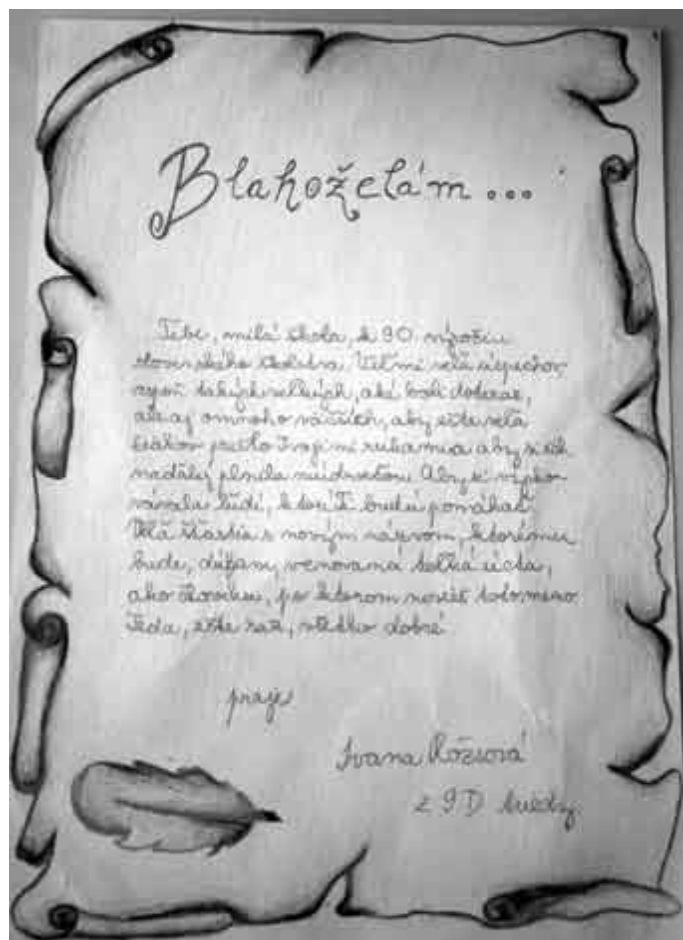 Blahoželám...
Tebe, milá škola, k 90. výročiu
slovenského školstva. Veľmi veľa úspechov,
aspoň takých veľkých, aké boli doteraz,
ale aj omnoho väčších, aby ešte veľa
žiakov prešlo Tvojimi rukami a aby si ich
naďalej plnila múdrosťou. Aby si vycho-
vávala ľudí, ktorí Ti budú pomáhať.
Veľa šťastia s novým názvom, ktorému
bude, dúfam, venovaná toľká úcta,
ako človeku, po ktorom nesieš toto meno.
Teda, ešte raz, všetko dobré
praje
Ivana Rózsová
z 9D triedy